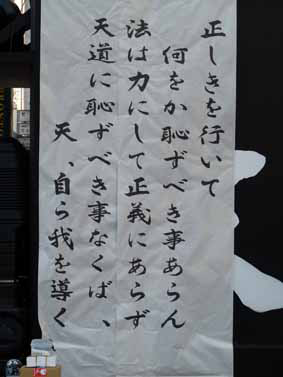 正しきを行いて
何をか恥ずべき事あらん
法は力にして正義にあらず
天道に恥ずべき事なくば、
天、自ら我を導く